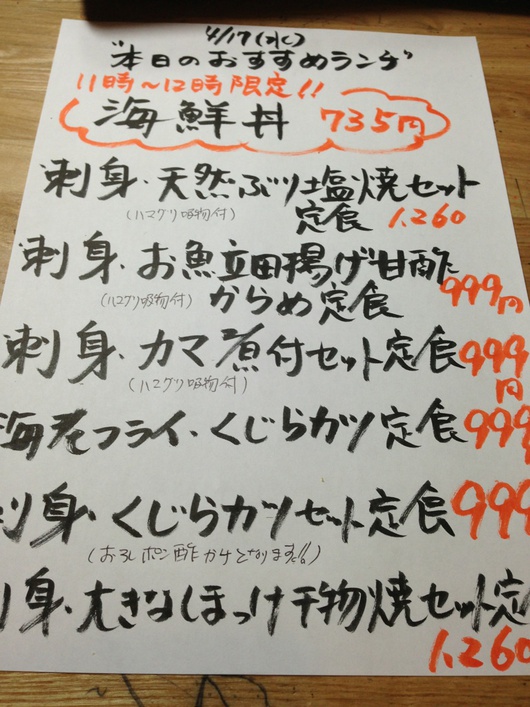 4/17(水)
"本日のおすすめランチ"
11時~12時限定!!
海鮮丼 735円
刺身・天然ぶり塩焼セット
(ハマグリ吸物付) 定食 1,260
刺身・お魚立田揚げ甘酢
(ハマグリ吸物付) からめ定食 999円
刺身・カマ煮付セット定食 999円
(ハマグリ吸物付)
海老フライ・くじらカツ定食 999
刺身・くじらカツセット定食 999
(おろしポン酢かけとなります!!)
身・大きなほっけ干物焼セット定
1,260